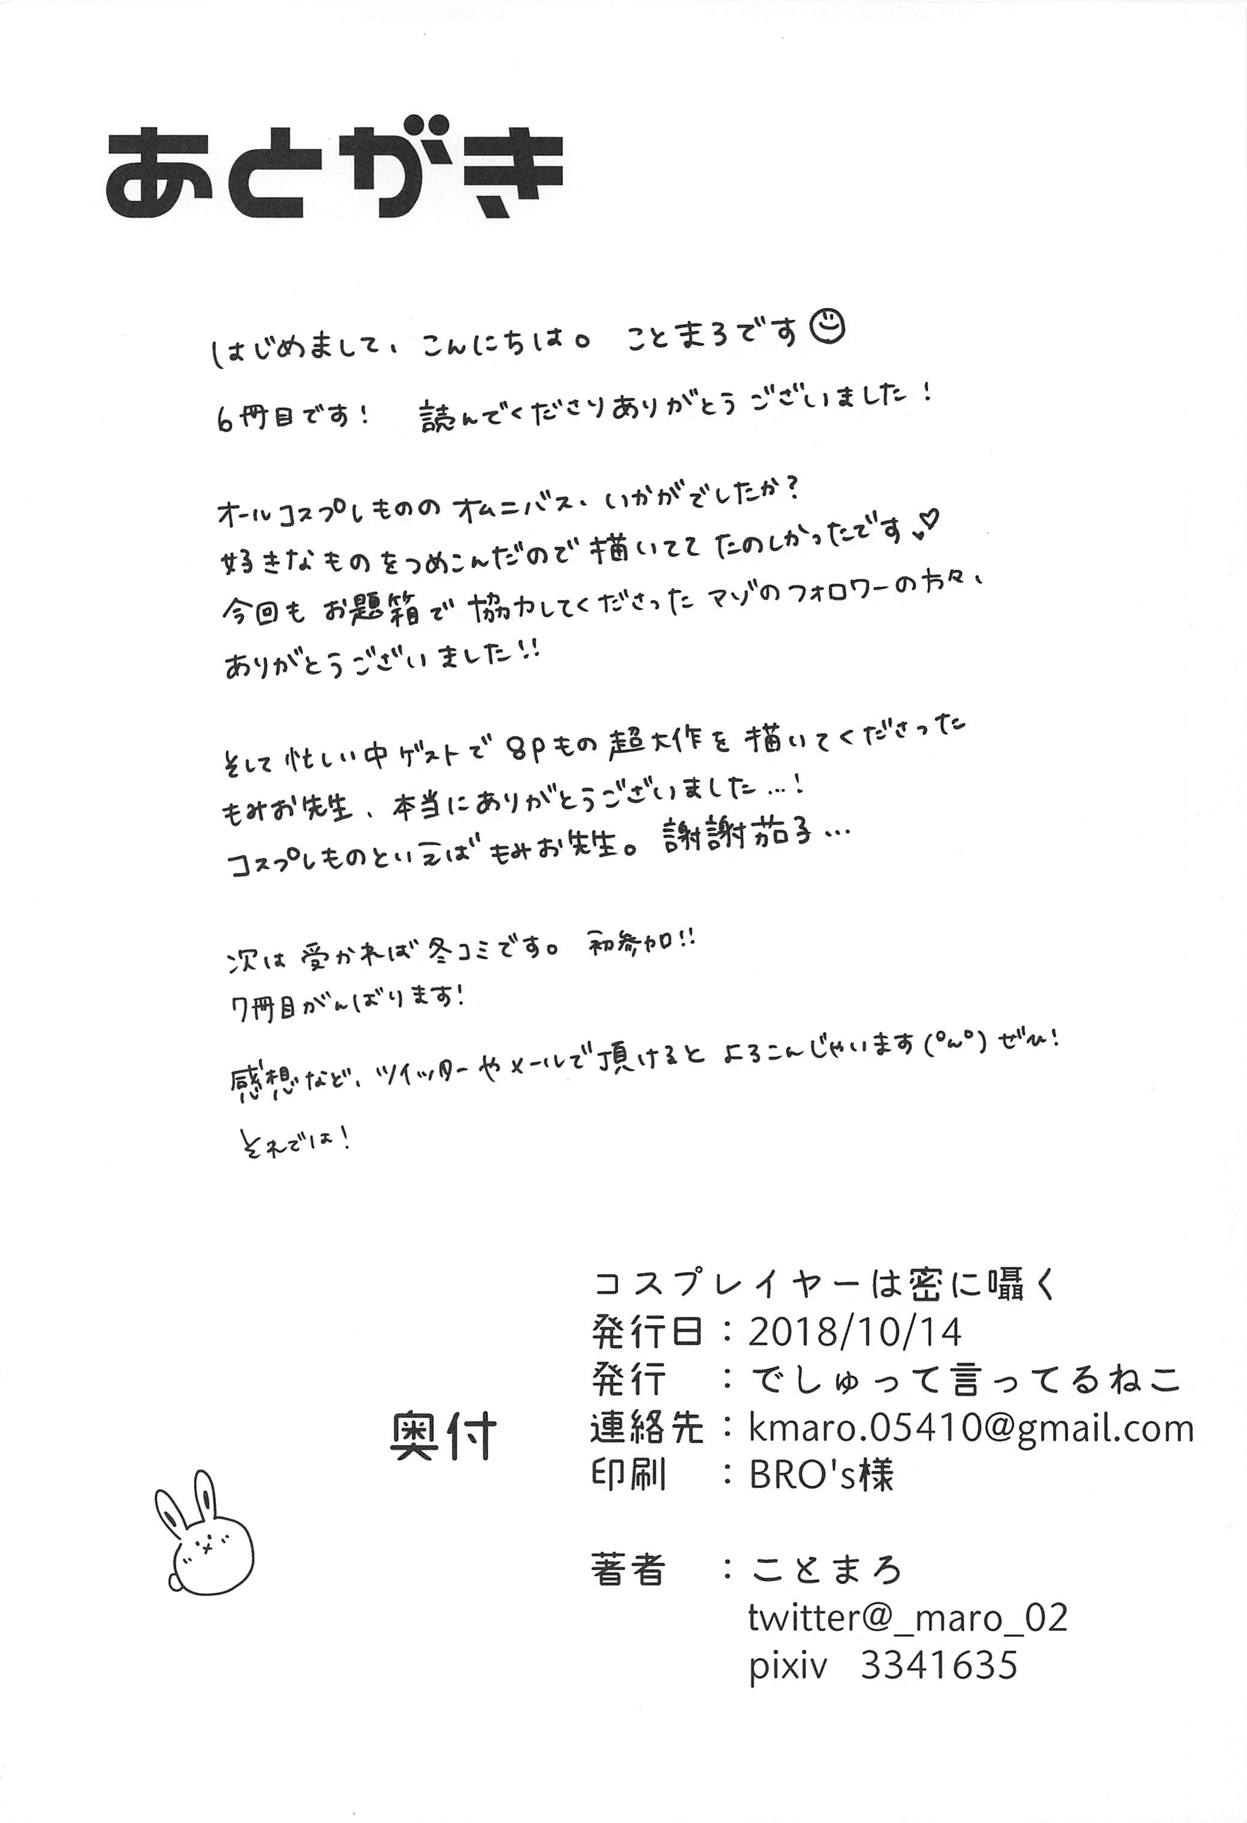 あとがき
はじめまして、こんにちは。 ことまろです
6冊目です! 読んでくださりありがとうございました!
オールコスプレもののオムニバス、いかがでしたか?
好きなものをつめこんだので描いてて たのしかったです♡
今回も お題箱で 協力してくださった マゾのフォロワーの方々、
ありがとうございました!!
そして忙しい中 ゲストで 8pもの 超大作を 描いてくださった
もみお先生、本当にありがとうございました…!
コスプレものといえば もみお先生。 謝謝茄子…
次は 受かれば 冬コミです。 初参加!!
7冊目がんばります!
感想など、ツイッターやメールで頂けると よろこんじゃいます(°ω°) ぜひ!
それでは!
コスプレイヤーは密に囁く
発行日:2018/10/14
発行 :でしゅって言ってるねこ
奥付
連絡先:kmaro.05410@gmail.com
印刷 :BRO's様
著者 :ことまろ
twitter@_maro_02
pixiv 3341635